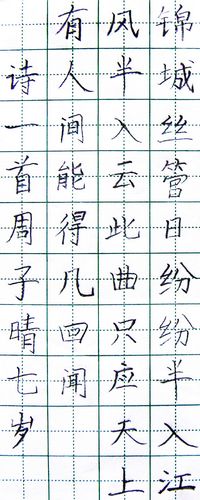 锦城丝管日纷纷半入江
风半入云此曲只应天上
有人间能得几回闻
诗一首周子晴七岁